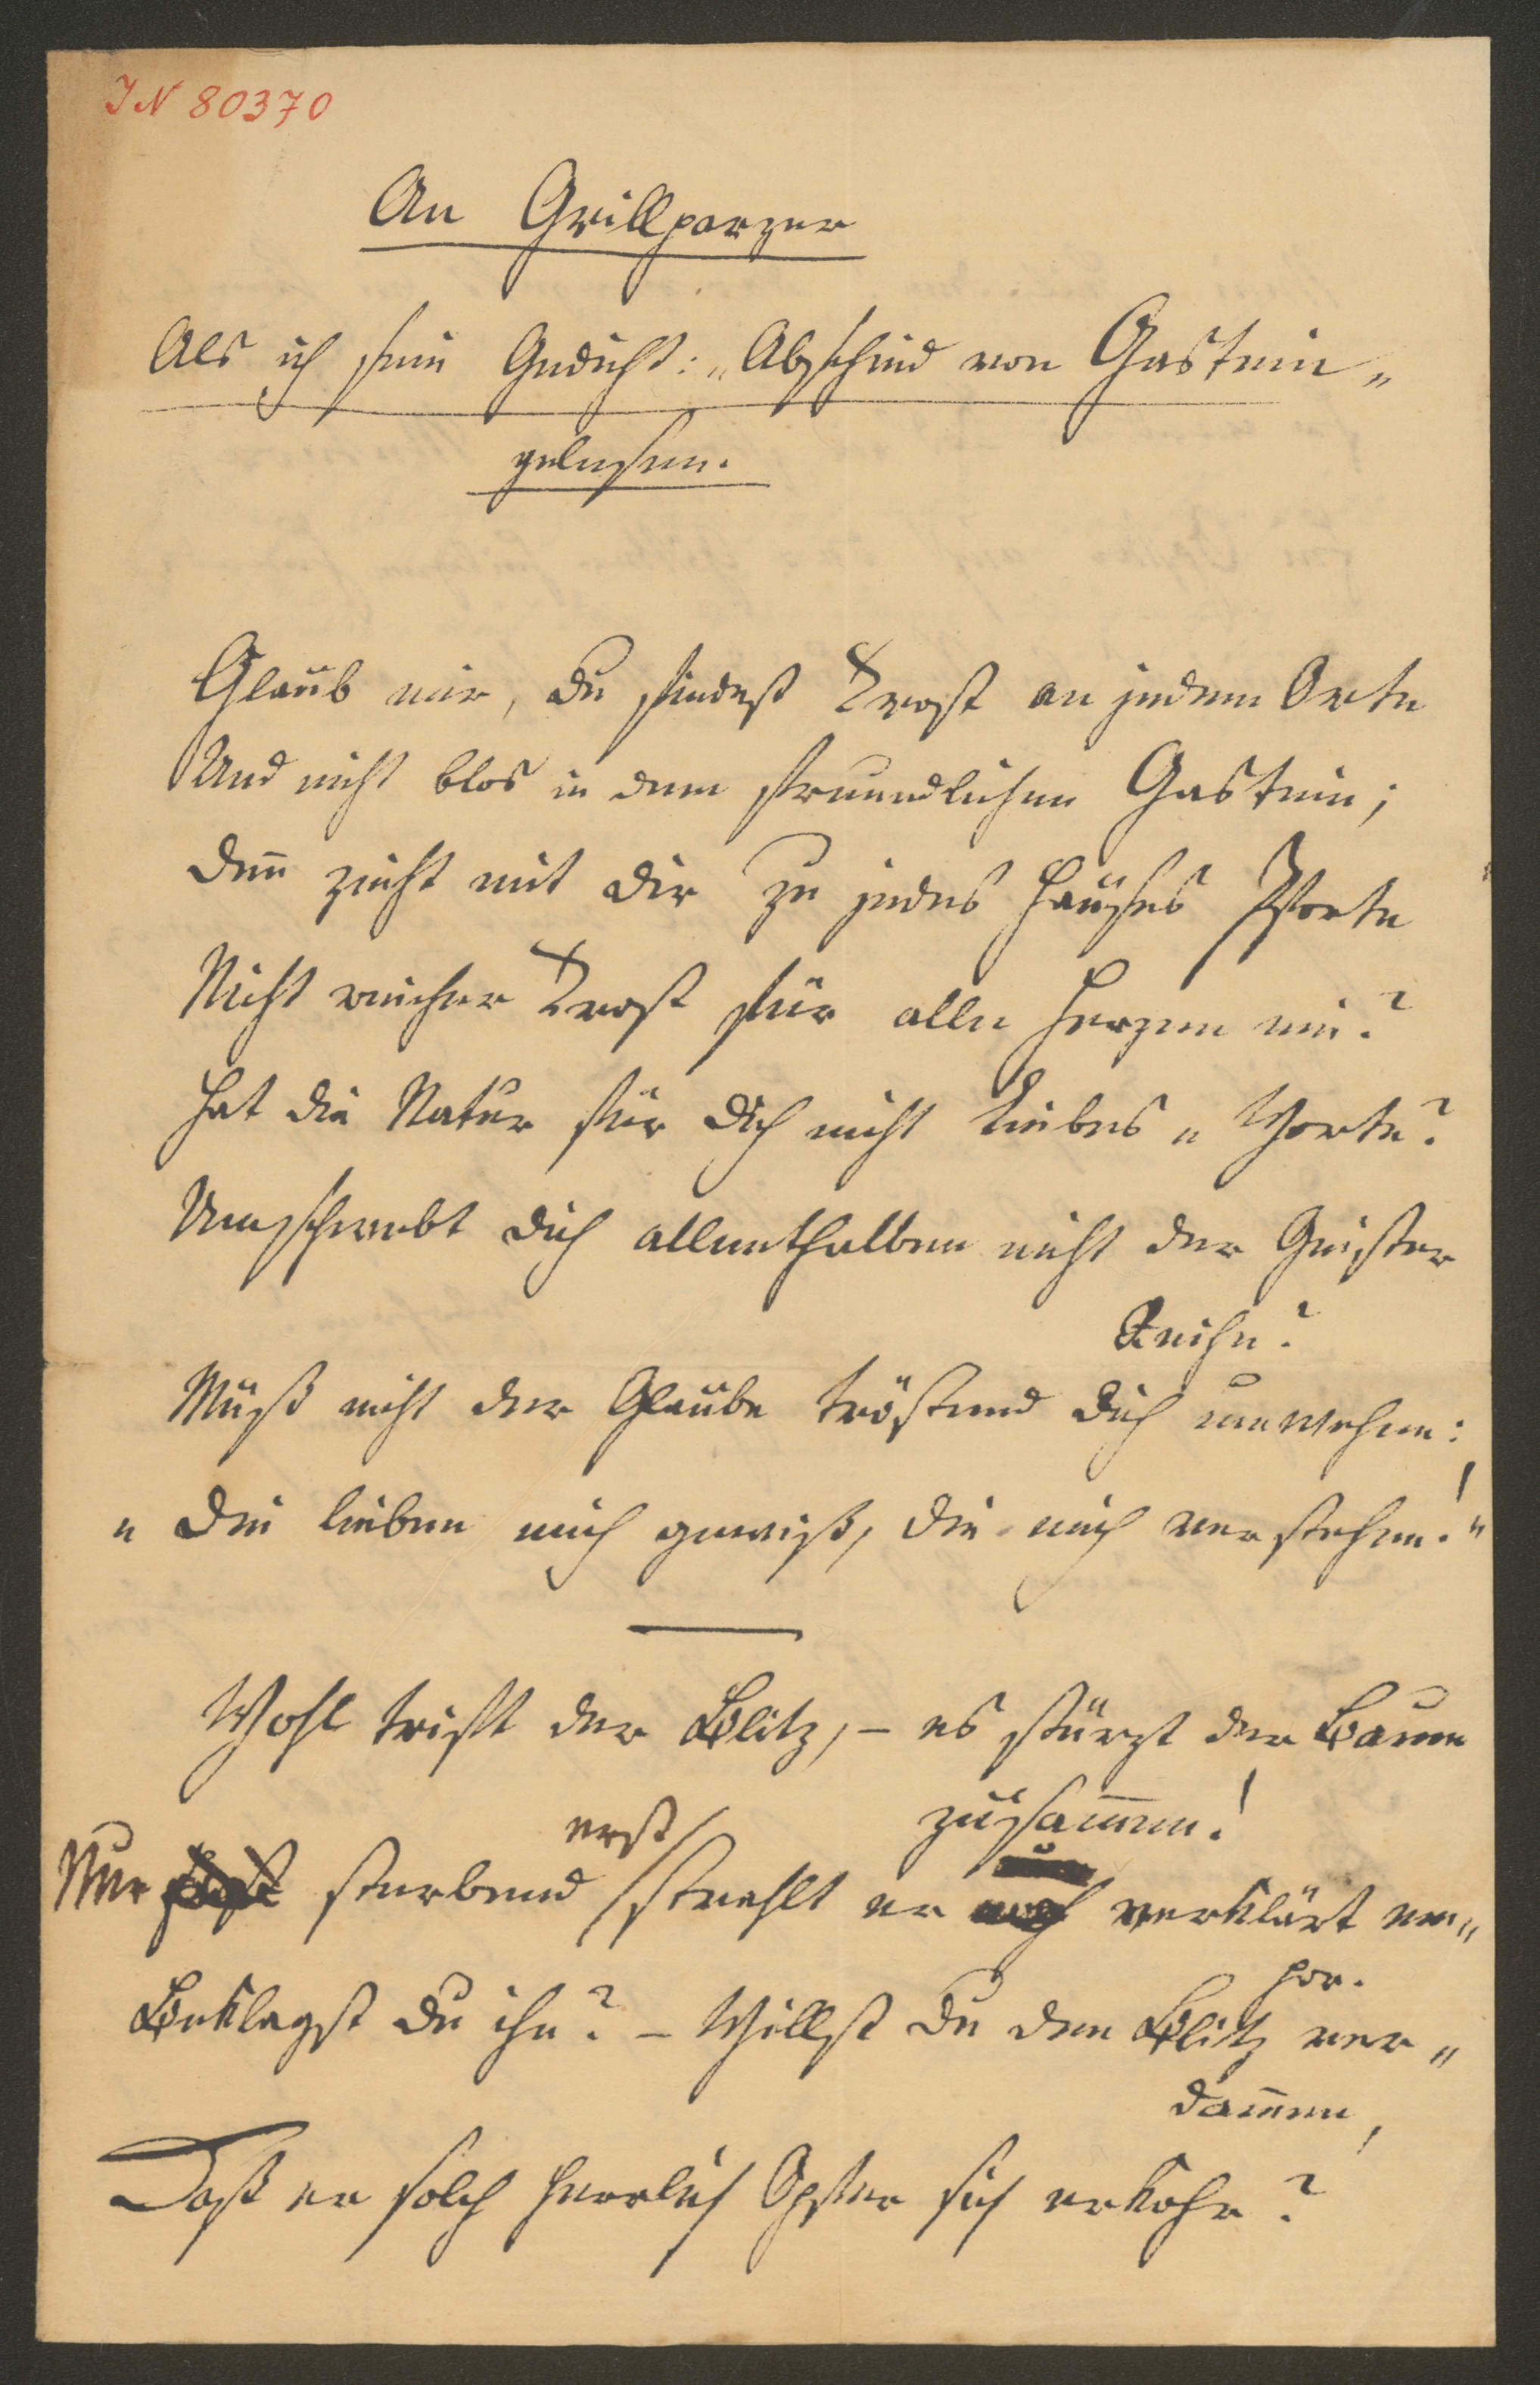 IN 80370
An Grillparzer
Als ich sein Gedicht: „Abschied von Gastein„
gelesen.
Glaub mir, du findest Trost an jedem Orte
Und nicht blos in dem freundlichen Gastein;
Denn zieht mit dir zu jedes Hauses Pforte
Nicht reicher Trost für alle Herzen ein?
Hat die Natur für dich nicht Liebes„Worte?
Umschwebt dich allenthalben nicht der Geister
Reihe?
Muß nicht der Glaube tröstend dich umwehen:
„Die lieben mich gewiß, die mich verstehen!“
Wohl trifft der Blitz, – es stürzt der Baum
zusammen!
erst
Nur sterbend strahlt er verklärt em„
por.
Beklagst du ihn? – Willst du den Blitz ver„
dammen,
Daß er solch herrlich Opfer sich erkohr?